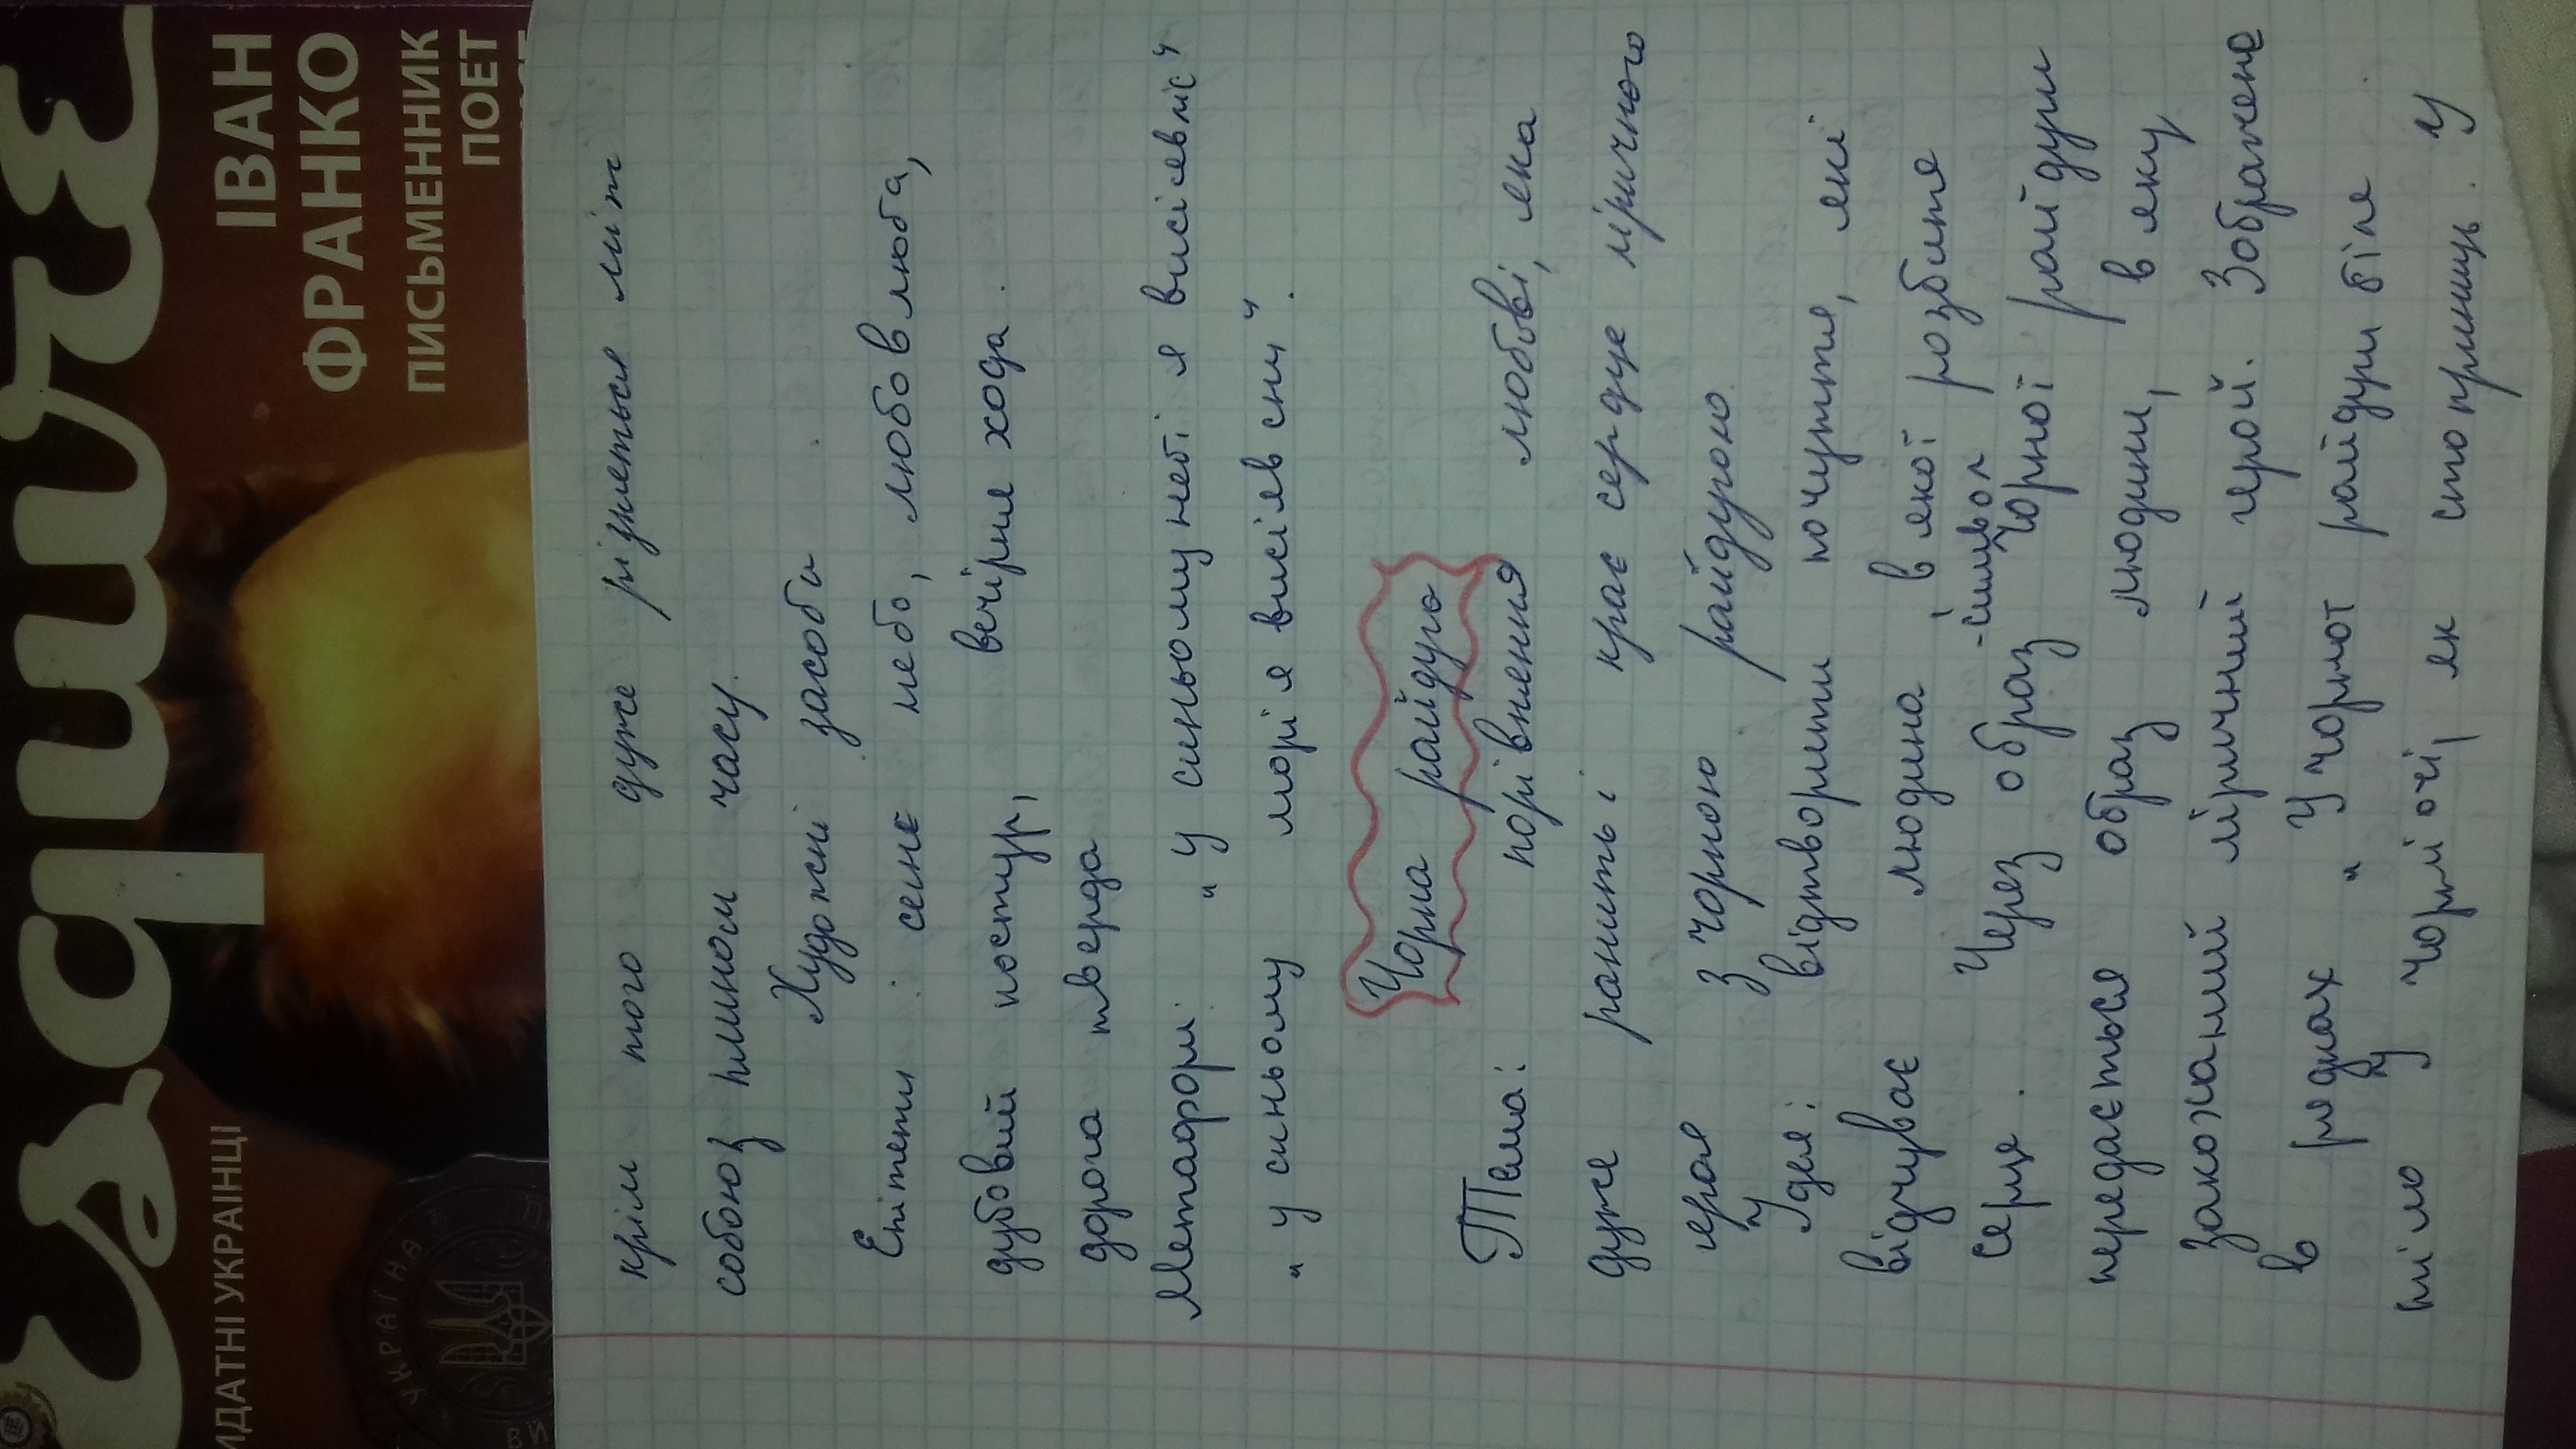 Esquire
ІВАН
ФРАНКО
ПИСЬМЕННИК
ПОЕТ
ИДАТНІ УКРАЇНЦІ
УКРАЇНА
крім того дуже різняться між
собою з плином часу.
Художні засоби.
Епітети: синє небо, любов люба,
дубовий постур, вечірня хода.
дорога тверда
Метафори: „у синьому небі я висіяв ліс"
„у синьому морі я висіяв сни".
Чорна райдуга
Тема: порівнення любові, яка
дуже ранить і крає серце ліричного
героя з чорною райдугою.
Ідея: відтворити почуття, які
відчуває людина, в якої розбите
серце. Через образ-символ чорної райдуги
передається образ людини, в яку
закоханий ліричний герой. Зображене
в рядках „У чорнот райдуги біле
тіло у чорні очі, як сто криниць. У